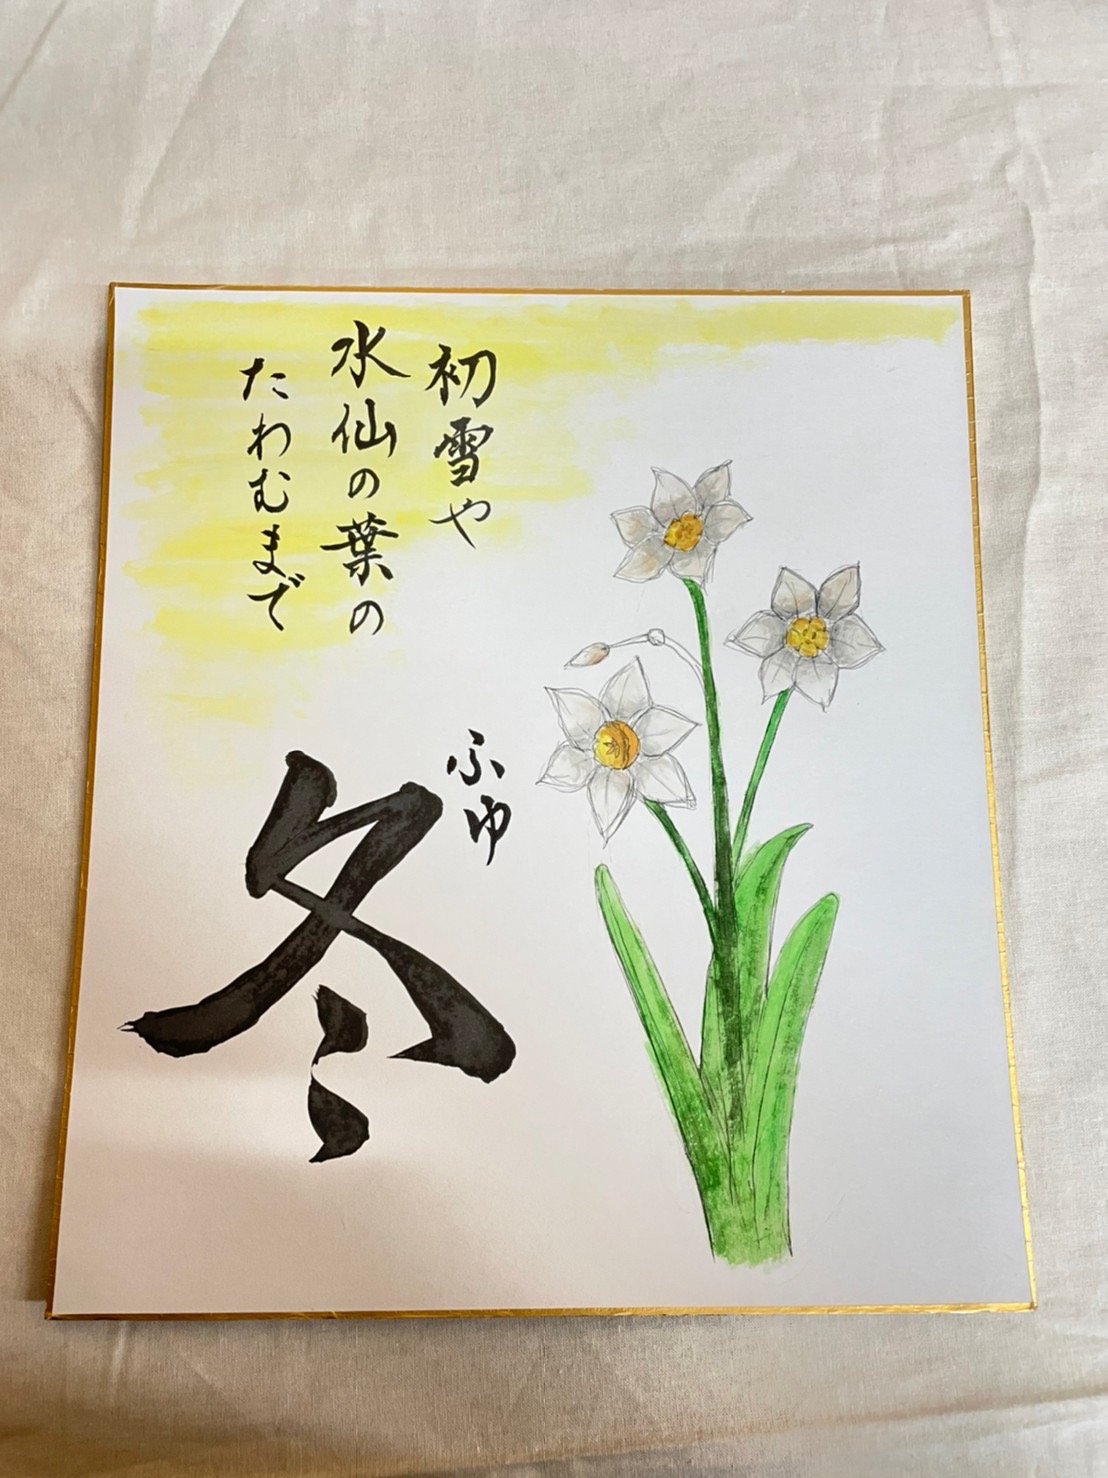 初雪や
水仙の葉の
たわむまで
ふゆ
冬